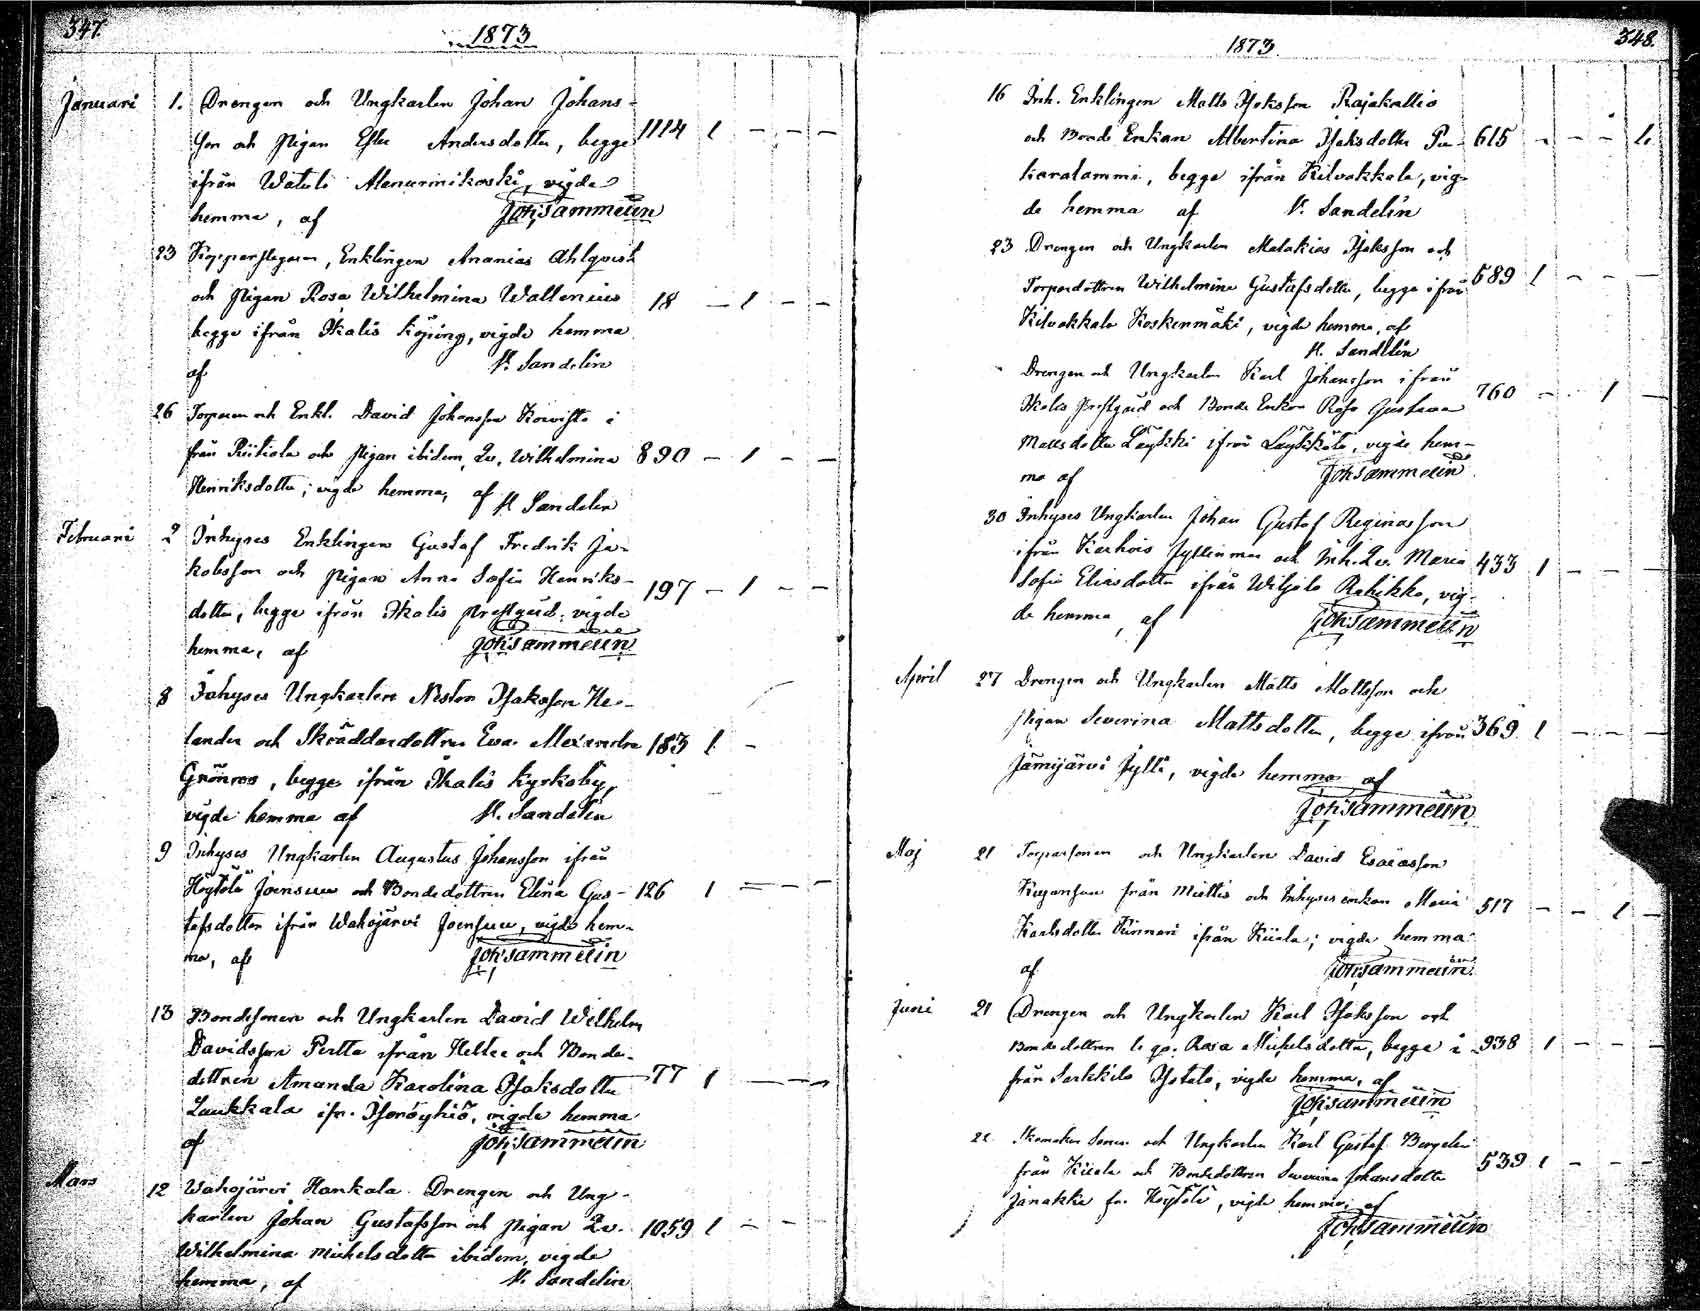 347.
1873
Januari 1. Drengen och Ungkarlen Johan Johans-
son och pigan Ester Andersdotter, begge 1114 1 - - -
ifrån Watula Alanurmikoski, vigde
hemma, af Joh: Sammelin
23 Kopparslagaren, Enklingen Ananias Ahlqvist
och pigan Rosa Wilhelmina Wallenius 18 - 1 - -
begge ifrån Ikalis köping, vigde hemma
af K. Sandelin
26 Torparen och Enkl. David Johansson Koivisto i
från Riitiala och pigan ibidem, Qv. Wilhelmina 890 - 1 - -
Henriksdotter; vigde hemma, af K. Sandelin
Februari 2 Inhyses Enklingen Gustaf Fredrik Ja-
kobsson och pigan Anna Sofia Henriks- 197 - 1 - -
dotter, begge ifrån Ikalis prestgård, vigde
hemma, af Joh: Sammelin
8 Inhyses Ungkarlen Nestor Isaksson He-
lander och Skräddardottren Eva Alexandra 183 1 -
Grönroos, begge ifrån Ikalis kyrkoby,
vigde hemma af K. Sandelin
9 Inhyses Ungkarlen Augustus Johansson ifrån
Höytölä Joensuu och Bondedottren Elina Gus- 126 1 - - -
tafsdotter ifrån Wahojärvi Joensuu, vigde hem-
ma, af Joh: Sammelin
13 Bondesonen och Ungkarlen David Wilhelm
Davidsson Pertta ifrån Kelkee och Bonde-
dottren Amanda Karolina Isaksdotter 77 1 - - -
Laukkala ifr. Isoröyhiö, vigde hemma
af Joh: Sammelin
Mars 12 Wahojärvi Hankala Drengen och Ung-
karlen Johan Gustafsson och pigan Qv. 1059 1 - - -
Wilhelmina Michelsdotter ibidem, vigde
hemma, af K. Sandelin
348.
1873
16 Inh. Enklingen Matts Isaksson Rajakallio
och Bonde Enkan Albertina Isaksdotter 615 - - - 1.
begge ifrån Kilvakkala, vig-
de hemma af K. Sandelin
23 Drengen och Ungkarlen Malakias Isaksson och
Torparedottren Wilhelmina Gustafsdotter, begge ifrån 589 1 - - -
Kilvakkala Koskenmäki, vigde hemma, af
K. Sandelin
Drengen och Ungkarlen Karl Johansson ifrån
Ikalis prestgård och Bonde Enkan Rosa Gustava 760 - - 1 -
Mattsdotter ifrån vigde hem-
ma af Joh: Sammelin
30 Inhyses Ungkarlen Johan Gustaf Reginasson
ifrån Karhois Jyllinmaa och Inh. Qv. Maria 433 1 - - -
Sofia Eliasdotter ifrån Wiljala Rahikka, vig-
de hemma, af Joh: Sammelin
April 27 Drengen och Ungkarlen Matts Mattsson och
pigan Severina Mattsdotter, begge ifrån 369 1 - - -
Jämijärvi Jylli, vigde hemma af
Joh: Sammelin
Maj 21 Torparsonen och Ungkarlen David Esaiasson
Kujansuu från Miettis och Inhyses enkan Maria 517 - - 1 -
Karlsdotter ifrån Kiiala; vigde hemma
af Joh: Sammelin
Juni 21 Drengen och Ungkarlen Karl Isaksson och
Bondedottren Rosa Michelsdotter, begge i 938 1 - - -
från Sarkkila Isotalo, vigde hemma, af
Joh: Sammelin
22 Skomakare Sonen och Ungkarlen Karl Gustaf Bergelin
från Kiiala och Bondedottren Severina Johansdotter 539 1 - - -
Janakka fr. Höytölä, vigde hemma af
Joh: Sammelin